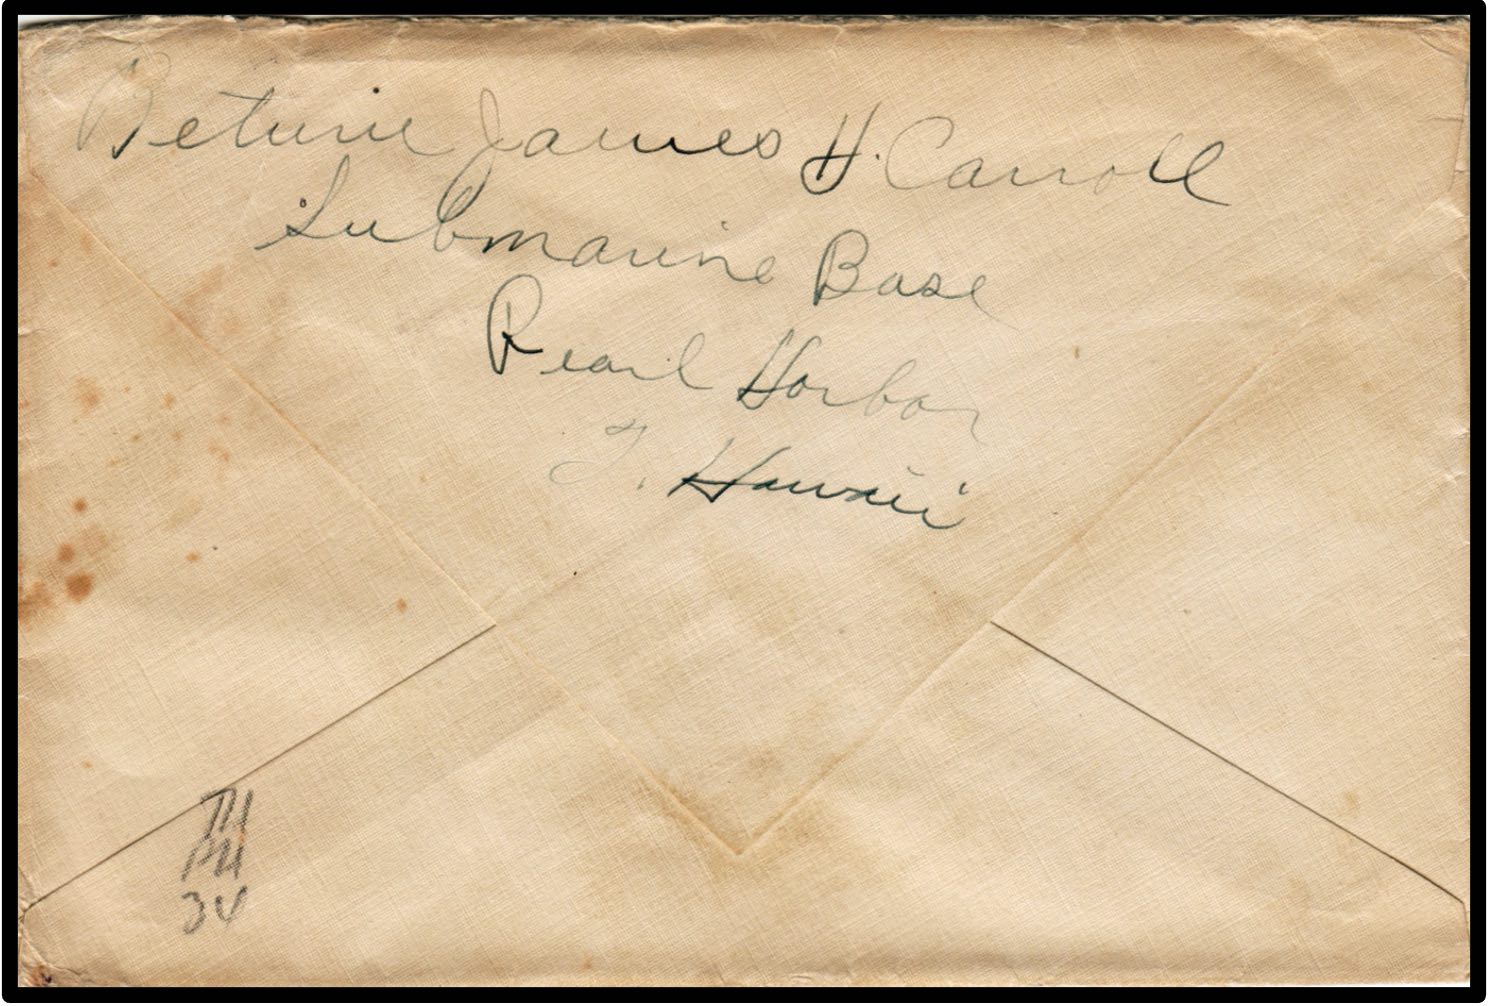 Return James H. Carroll
Submarine Base
Pearl Harbor
T. Hawaii
34